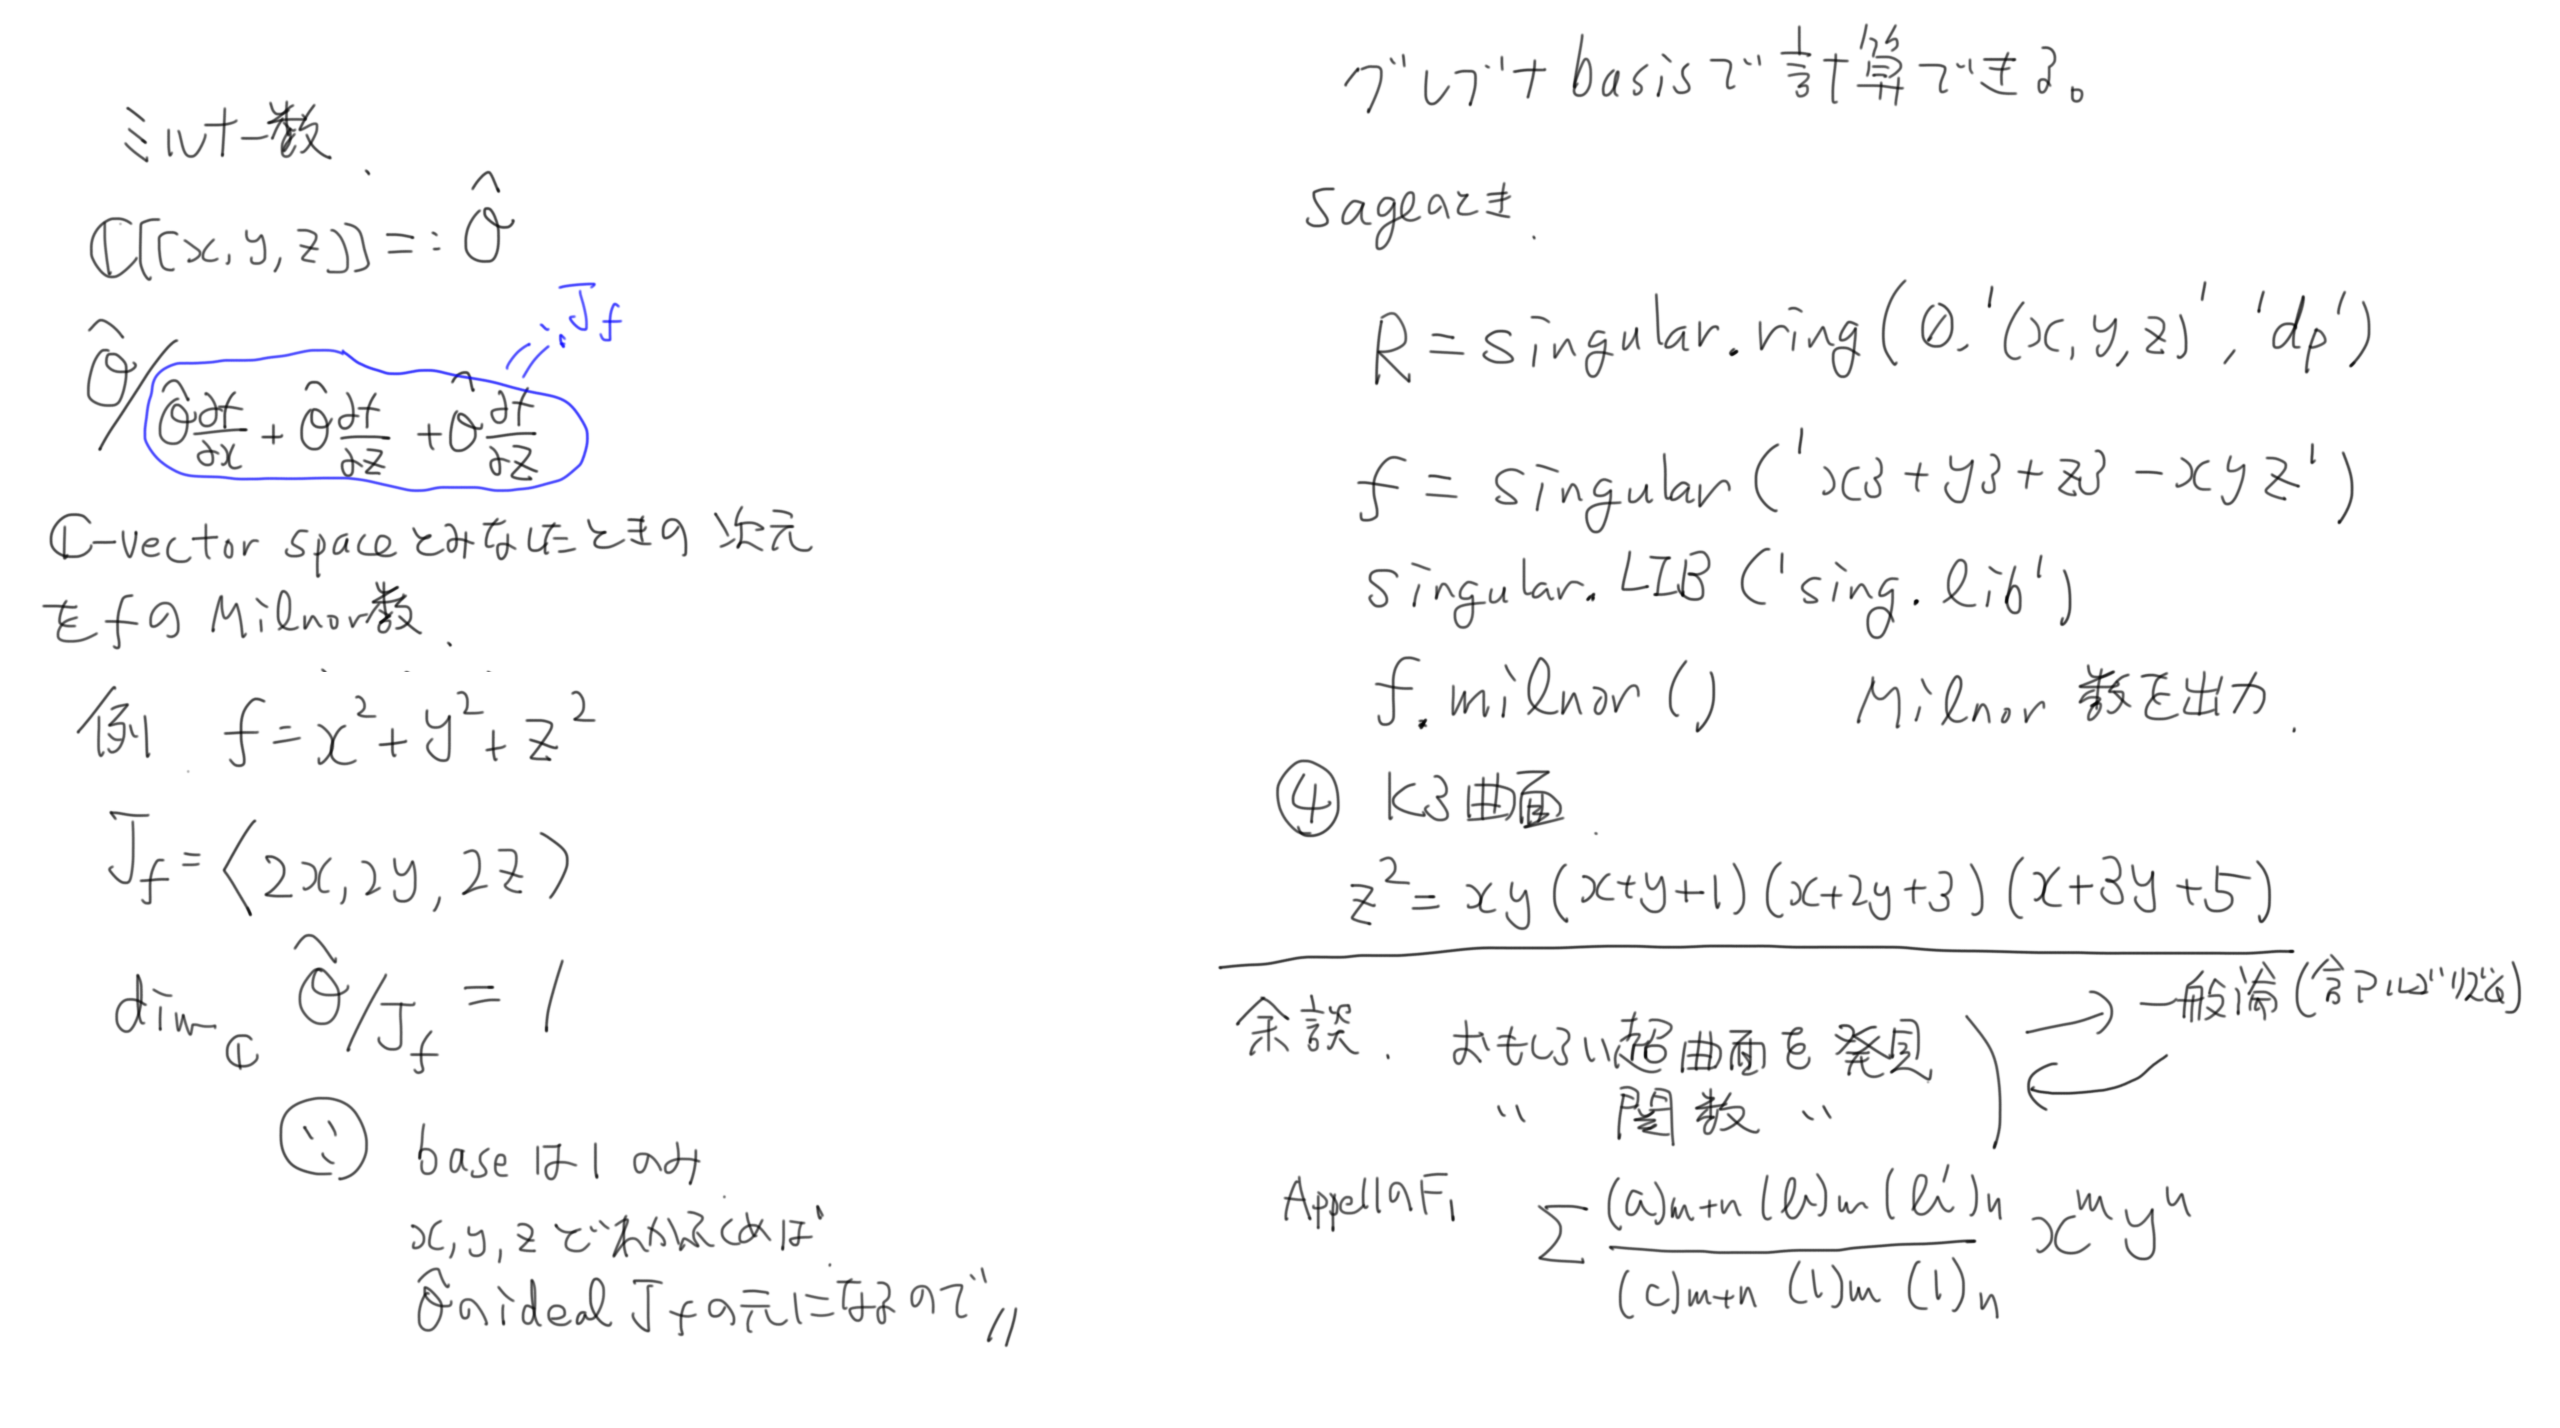 ミルナー数.
ℂ[[x,y,z]]=:Ô
J_f
Ô/Ô∂f/∂x + Ô∂f/∂z + Ô∂f/∂z
ℂ-vector spaceとみなしたときの次元
をfのMilnor数.
例. f=x²+y²+z²
J_f=⟨2x,2y,2z⟩
dim_ℂ Ô/J_f = 1
∵ baseは1のみ.
x,y,zどれかふくめば.
Ôのideal J_fの元になるので〃
グレブナbasisで計算できる。
sageのとき.
R=singular.ring(0,'(x,y,z)','dp')
f=singular('x3+y3+z3-xyz')
singular.LIB('sing.lib')
f.milnor() Milnor数を出力.
④ K3曲面.
z²=xy(x+y+1)(x+2y+3)(x+3y+5)
余談. おもしろい超曲面を発見 → 一般論(含アルゴリズム)
〃 関数 〃 ←
AppellのF₁ Σ (a)m+n (b)m (b')n / (c)m+n (1)m (1)n x^m y^n